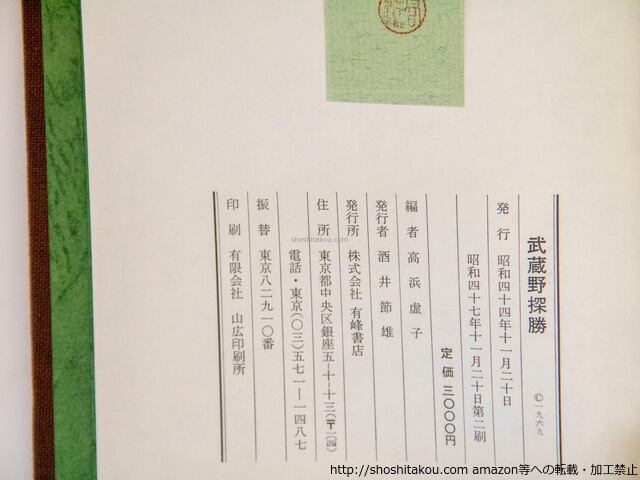 武蔵野探勝
©一九六九
発行 昭和四十四年十一月二十日
昭和四十七年十一月二十日第二刷
定価 三〇〇〇円
編者 高浜虚子
発行者 酒井節雄
発行所 株式会社 有峰書店
住所 東京都中央区銀座五―十―十三(〒一〇四)
電話・東京(〇三)五七一―一四八七
振替 東京八二九一〇番
印刷 有限会社 山広印刷所
shoshitakou.com
http://shoshitakou.com amazon等への転載・加工禁止